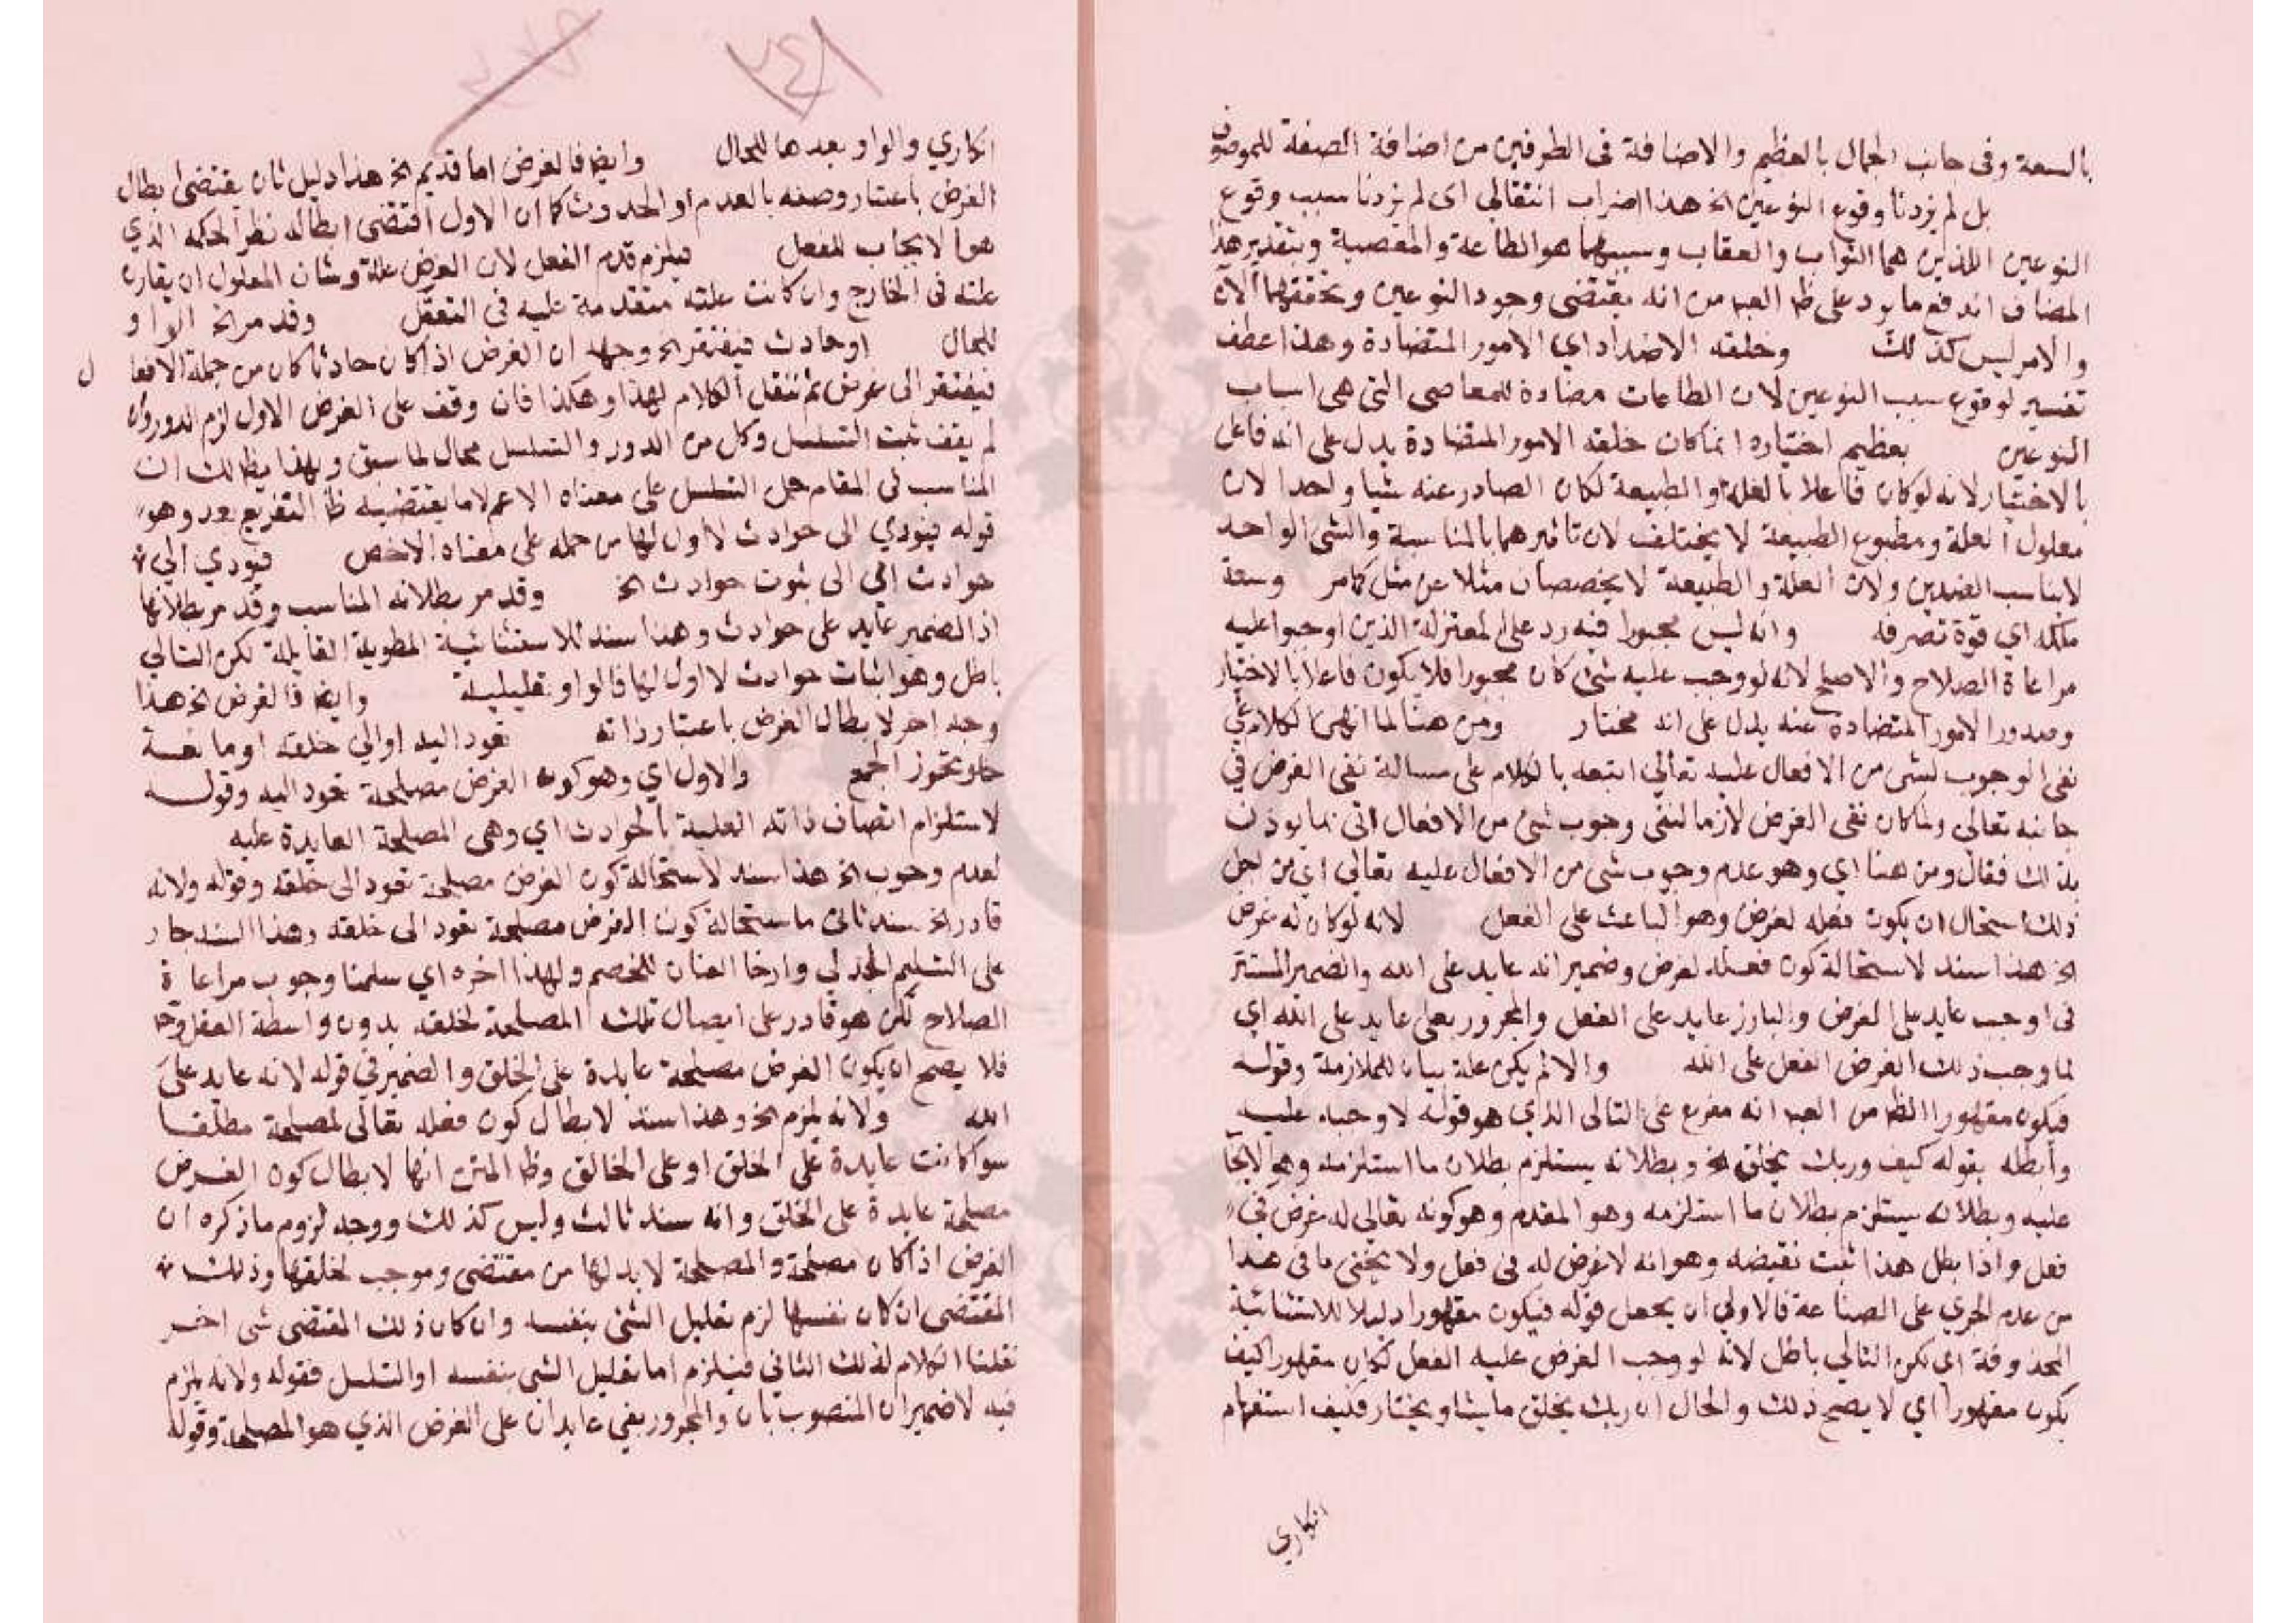 بالسعة وفى جانب الجمال بالعظيم والاضافة فى الطرفين من اضافة الصفة للموصوف
بل لم يزدنا وقوع النوعين الخ هذا اضراب انتقالي اى لم يزدنا سبب وقوع
النوعين اللذين هما الثواب والعقاب وسببهما هو الطاعة والمعصية وبتقدير هذا
المضاف اندفع ما يرد على ظ العبا من انه يقتضى وجود النوعين وتحققهما الآن
والامر ليس كذلك وخلقه الاضداد اي الامور المتضادة وهذا عطف
تفسير لوقوع سبب النوعين لان الطاعات مضادة للمعاصى التى هى اسباب
النوعين بعظيم اختياره انما كان خلقه الامور المتضادة يدل على انه فاعل
بالاختيار لانه لو كان فاعلا بالعلة والطبيعة لكان الصادر عنه شيا واحدا لان
معلول العلة ومطبوع الطبيعة لا يختلف لان تاثيرهما بالمناسبة والشى الواحد
لا يناسب الضدين ولان العلة والطبيعة لا يخصصان مثلا عن مثل كما مر وسعة
ملكه اى قوة تصرفه وانه ليس مجبورا فيه رد على المعتزلة الذين اوجبوا عليه
مراعاة الصلاح والاصلح لانه لو وجب عليه شئ كان مجبورا فلا يكون فاعلا بالاختيار
وصدور الامور المتضادة عنه يدل على انه مختار ومن هنا لما انهى الكلام على
نفى الوجوب لشى من الافعال عليه تعالي اتبعه بالكلام على مسالة نفى الغرض في
جانبه تعالى ولما كان نفى الغرض لازما لنفى وجوب شئ من الافعال اتى بما يوذن
بذلك فقال ومن هنا اي وهو عدم وجوب شى من الافعال عليه تعالى اي من اجل
ذلك استحال ان يكون فعله لغرض وهو الباعث على الفعل لانه لو كان له غرض
الخ هذا سند لاستحالة كون فعله لغرض وضمير انه عايد على الله والضمير المستتر
فى اوجب عايد على الغرض والبارز عايد على الفعل والمجرور بعلى عايد على الله اي
لما وجب ذلك الغرض الفعل على الله والا لم يكن علة بيان للملازمة وقوله
فيكون مقهورا الظ من العبا انه مفرع على التالى الذي هو قوله لاوجبه عليه
وابطله بقوله كيف وربك يخلق الخ وبطلانه يستلزم بطلان ما استلزمه وهو الايجا
عليه وبطلانه يستلزم بطلان ما استلزمه وهو المقدم وهو كونه تعالي له غرض في
فعل واذا بطل هذا ثبت نقيضه وهو انه لا غرض له فى فعل ولا يخفى ما فى هذا
من عدم الجري على الصناعة فالاولي ان يجعل قوله فيكون مقهورا دليلا للاستثنائية
المحذوفة اى لكن التالي باطل لانه لو وجب الغرض عليه الفعل لكان مقهورا كيف
يكون مقهورا اي لا يصح ذلك والحال ان ربك يخلق ما يشا ويختار فكيف استفهام
انكاري
انكاري والواو بعدها للحال وايضا فالغرض اما قديم الخ هذا دليل ثان يقتضى ابطال
الغرض باعتبار وصفه بالعدم او الحدوث كما ان الاول اقتضى ابطاله نظرا لحكمه الذي
هو الايجاب للفعل فيلزم قدم الفعل لان الغرض علة وشان المعلول ان يقارن
علته فى الخارج وان كانت علته متقدمة عليه فى التعقل وقد مر الخ الواو
للحال اوحادث فيفتقر الخ وجهه ان الغرض اذا كان حادثا كان من جملة الافعال
فيفتقر الى غرض ثم ننقل الكلام لهذا وهكذا فان وقف على الغرض الاول لزم الدور وان
لم يقف ثبت التسلسل وكل من الدور والتسلسل محال لما سبق وبهذا يظ لك ان
المناسب فى المقام حمل التسلسل على معناه الاعم لا ما يقتضيه ظ التفريع وهو
قوله فيودي الى حوادث لا اول لها من حمله على معناه الاخص فيودي الي
حوادث اي الى ثبوت حوادث الخ وقد مر بطلانه المناسب وقد مر بطلانها
اذ الضمير عايد على حوادث وهذا سند للاستثنائية المطوية القايلة لكن التالي
باطل وهو اثبات حوادث لا اول لها فالواو تعليلية وايضا فالغرض الخ هذا
وجه اخر لابطال الغرض باعتبار ذاته تعود اليه او الي خلقه او مانعة
خلو تجوز الجمع والاول اي وهو كون الغرض مصلحة تعود اليه وقوله
لاستلزام اتصاف ذاته العلية بالحوادث اي وهى المصلحة العايدة عليه
لعدم وجوب الخ هذا سند لاستحالة كون الغرض مصلحة تعود الى خلقه وقوله ولانه
قادر الخ سند ثانى لاستحالة كون الغرض مصلحة تعود الى خلقه وهذا السند جار
على التسليم الجدلي وارخا العنان للخصم ولهذا اخره اي سلمنا وجوب مراعاة
الصلاح لكن هو قادر على ايصال تلك المصلحة لخلقه بدون واسطة الفعل وح
فلا يصح ان يكون الغرض مصلحة عايدة على الخلق والضمير في قوله لانه عايد على
الله ولانه يلزم الخ وهذا سند لابطال كون فعله تعالى لمصلحة مطلقا
سوا كانت عايدة على الخلق او على الخالق وظ المتن انها لابطال كون الغرض
مصلحة عايدة على الخلق وانه سند ثالث وليس كذلك ووجه لزوم ما ذكره ان
الغرض اذا كان مصلحة والمصلحة لا بد لها من مقتضى وموجب لخلقها وذلك
المقتضى ان كان نفسها لزم تعليل الشئ بنفسه وان كان ذلك المقتضى شى اخر
نقلنا الكلام لذلك الثانى فيلزم اما تعليل الشى بنفسه او التسلسل فقوله ولانه يلزم
فيه لا ضميران المنصوب بان والمجرور بفى عايدان على الغرض الذي هو المصلحة وقوله